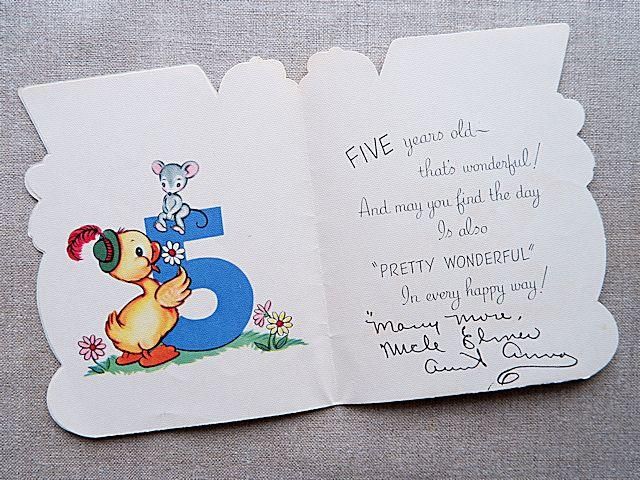 5
FIVE years old~
that's wonderful!
And may you find the day
Is also
"PRETTY WONDERFUL"
In every happy way!
"Many more,
Uncle Elmer
Aunt Anna